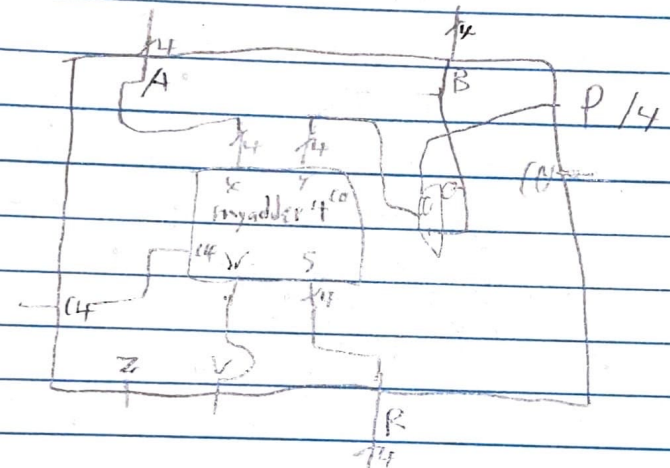 4 4
A B
P /4
4 4
X Y
myadder4 C0
C4 V S
4
C4
Z V
R
4